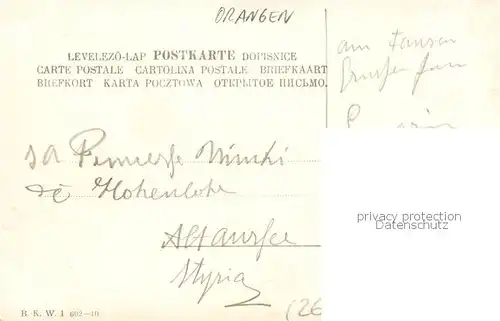 ORANGEN
LEVELEZŐ-LAP POSTKARTE DOPISNICE
CARTE POSTALE CARTOLINA POSTALE BRIEFKAART
BREFKORT KARTA POCZTOWA ОТКРЫТОЕ ПИСЬМО.
am
SA
de Hohenlohe
Altaussee
Styria
privacy protection
Datenschutz
B. K. W. I 602-10
(26